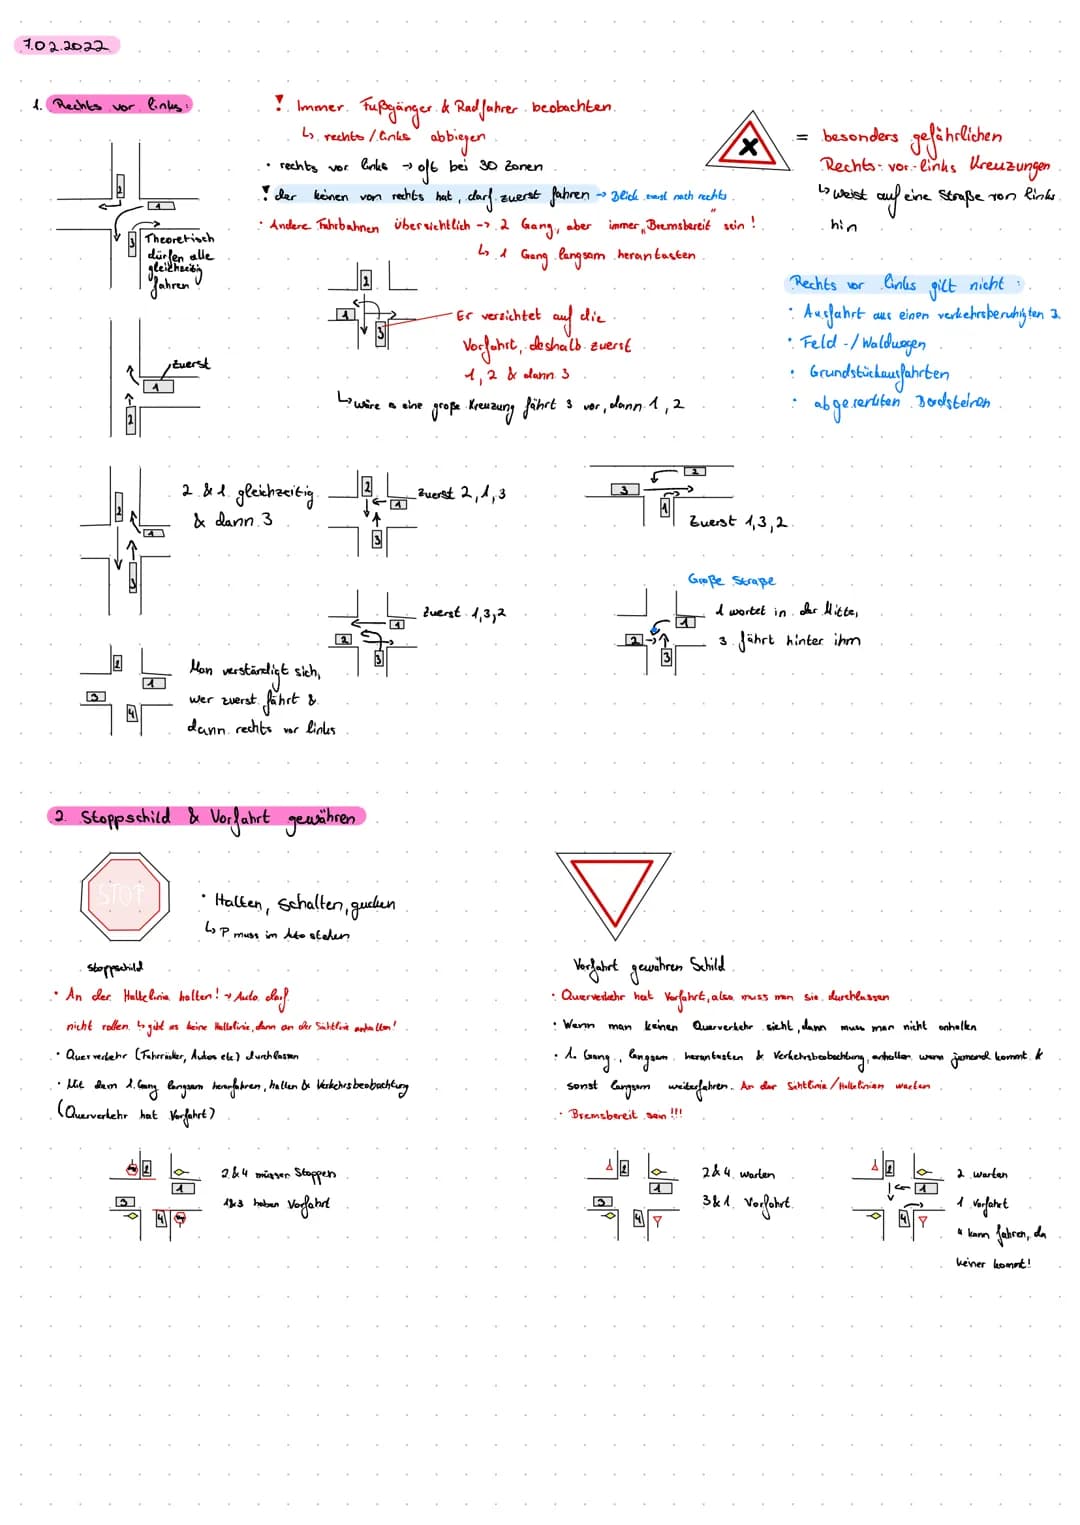 7.02.2022
1. Rechts vor links:
! Immer Fußgänger & Radfahrer beobachten.
↳ rechts / links abbiegen
• rechts vor links → oft bei 30 Zonen
! der keinen von rechts hat, darf zuerst fahren → Blick zuerst nach rechts.
• Andere Fahrbahnen übersichtlich → 2 Gang, aber immer „Bremsbereit" sein!
↳ 1 Gang langsam herantasten
= besonders gefährlichen
Rechts-vor-links Kreuzungen
↳ weist auf eine Straße von links
hin
2
1
3
Theoretisch
dürfen alle
gleichzeitig
fahren
2
1
3
Er verzichtet auf die
Vorfahrt, deshalb zuerst
1, 2 & dann 3
↳ wäre es eine große Kreuzung fährt 3 vor, dann 1, 2
Rechts vor links gilt nicht:
• Ausfahrt aus einen verkehrsberuhigten
• Feld-/Waldwegen
• Grundstücksausfahrten
• abgesenkten Bordsteinen
zuerst
1
2
2
1
3
2 & 1 gleichzeitig
& dann 3
2
1
3
zuerst 2, 1, 3
2
3
1
Zuerst 1, 3, 2
1
2
3
zuerst 1, 3, 2
Große Straße
1 wartet in der Mitte,
3 fährt hinter ihm
1
2
3
2
1
3
4
Man verständigt sich,
wer zuerst fährt &
dann rechts vor links
2. Stoppschild & Vorfahrt gewähren
STOP
• Halten, schalten, gucken
↳ P muss im Auto stehen
Stoppschild
• An der Haltelinie halten! → Auto darf
nicht rollen ↳ gibt es keine Haltelinie, dann an der Sichtlinie anhalten!
• Querverkehr (Fahrräder, Autos etc) durchlassen
• Mit dem 1. Gang langsam heranfahren, halten & Verkehrsbeobachtung
(Querverkehr hat Vorfahrt)
Vorfahrt gewähren Schild
• Querverkehr hat Vorfahrt, also muss man sie durchlassen
• Wenn man keinen Querverkehr sieht, dann muss man nicht anhalten
• 1. Gang, langsam herantasten & Verkehrsbeobachtung, anhalten wenn jemand kommt &
sonst langsam weiterfahren. An der Sichtlinie/Haltelinien warten
• Bremsbereit sein!!!
2
1
3
4
2 & 4 müssen Stoppen
1 & 3 haben Vorfahrt
2
1
3
4
2 & 4 warten
3 & 1 Vorfahrt
2
1
4
2 warten
1 Vorfahrt
4 kann fahren, da
keiner kommt!